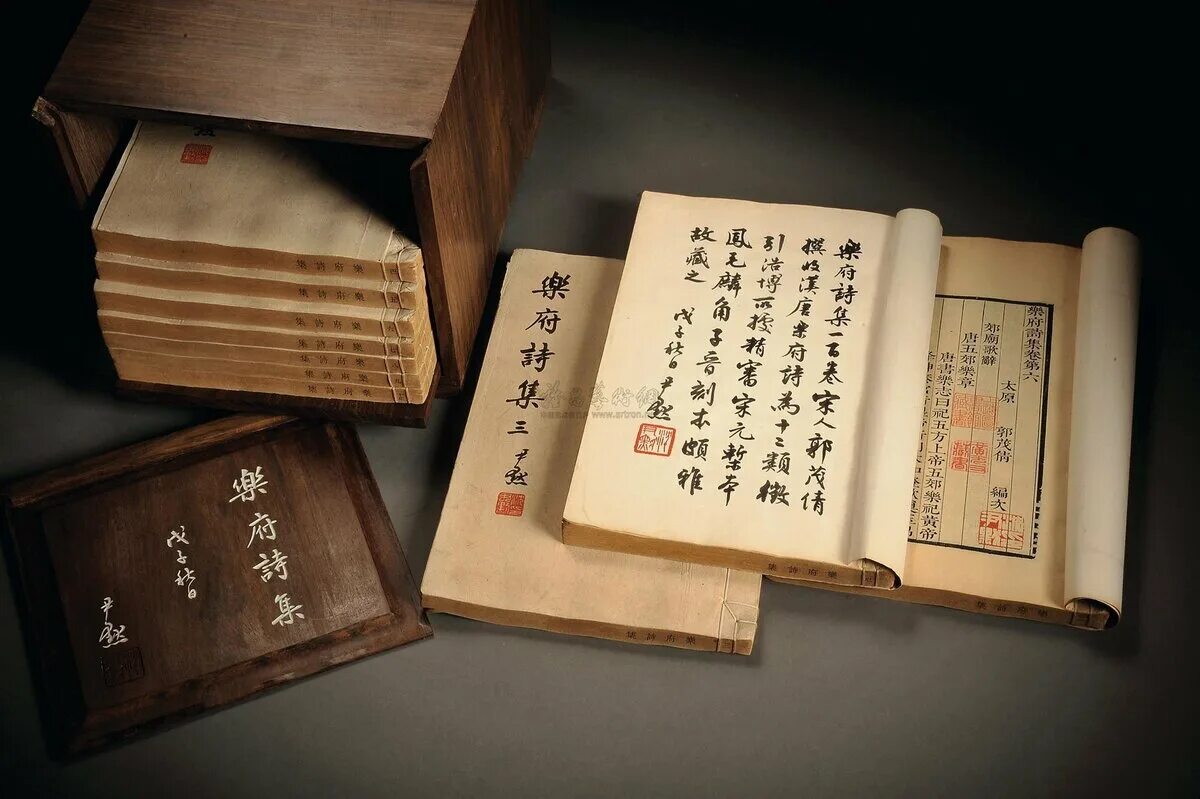 樂府詩集
樂府詩集
樂府詩集
樂府詩集
樂府詩集
樂府詩集
樂府詩集
樂府詩集
戊子秋日
尹默
樂府詩集三
尹默
樂府詩集
樂府詩集一百卷宋人郭茂倩
撰收漢唐樂府詩為十二類徵
引浩博所據精審宋元槧本
鳳毛麟角子晉刻本頗雅
故藏之 戊子秋日尹默
樂府詩集
樂府詩集卷第六
太原 郭茂倩 編次
郊廟歌辭
唐五郊樂章
唐書樂志曰祀五方上帝五郊樂祀黃帝
樂府詩集